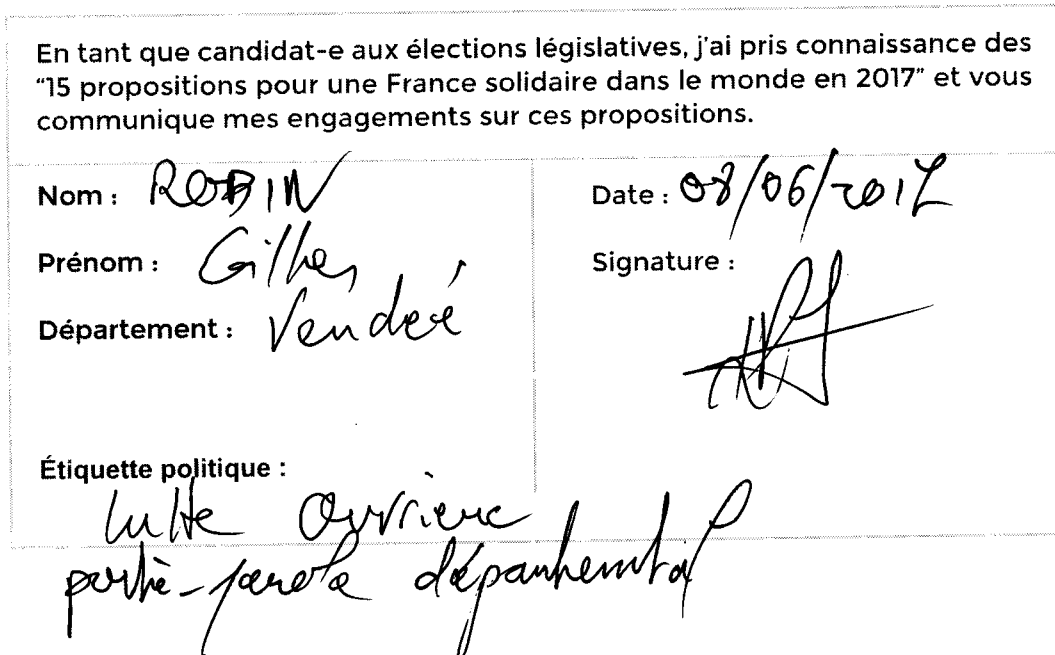 En tant que candidat-e aux élections législatives, j'ai pris connaissance des
“15 propositions pour une France solidaire dans le monde en 2017” et vous
communique mes engagements sur ces propositions.
Nom : ROBIN
Prénom : Gilles
Département : Vendée
Date : 08/06/2017
Signature :
Étiquette politique :
Lutte Ouvrière
porte-parole départemental